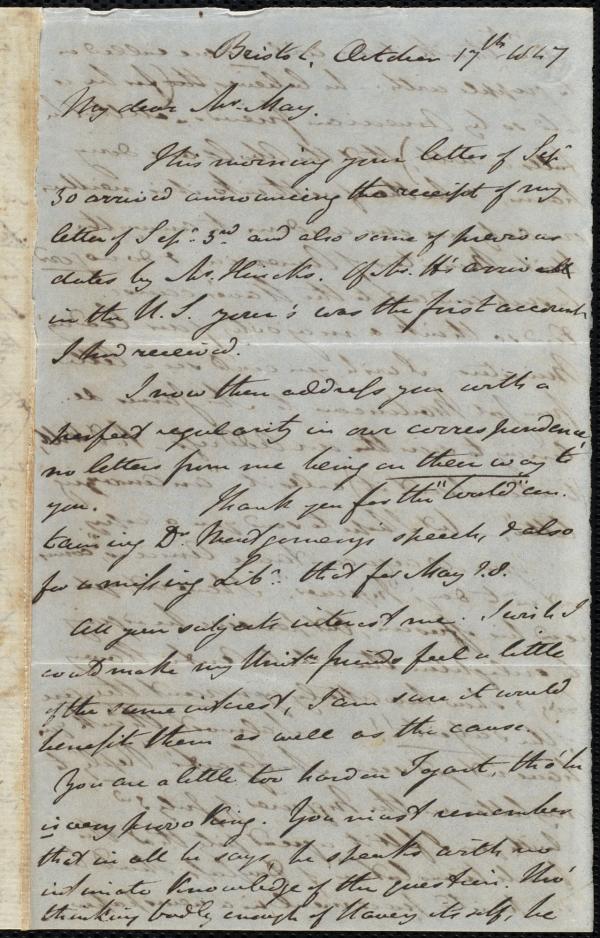 Bristol, October 17th 1847
My dear Mr. May.
This morning your letter of Sepr.
30 arrived announcing the receipt of my
letter of Sepr. 3rd and also some of previous
dates by Mr. Hincks. Of Mr. H's arrival
in the U.S. your's was the first account
I had received.
I now then address you with a
perfect regularity in our correspondence,
no letters from me being on their way to
you. Thank you for the "World" con-
taining Dr. Montgomery's speech, & also
for a missing Libr. that for May 28.
All your subjects interest me. I wish I
could make my Unitn. friends feel a little
of the same interest, I am sure it would
benefit them as well as the cause.
You are a little too hard on Tagart, tho' he
is very provoking. You must remember
that in all he says, he speaks with no
intimate knowledge of the question. Tho'
thinking badly enough of slavery itself, he